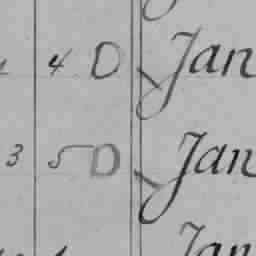 4 D Jan
3 5 D Jan
Jan